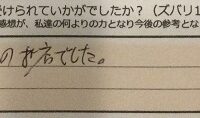 けられていかがでしたか？（ズバリ1
感想が、私達の何よりの力となり今後の参考とな
のお店でした。